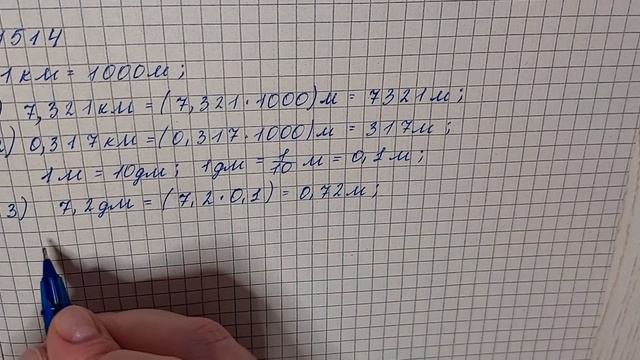 1514
1км = 1000м;
) 7,321км = (7,321·1000)м = 7321м;
2) 0,317км = (0,317·1000)м = 317м;
1м = 10дм; 1дм = 1/10 м = 0,1м;
3) 7,2дм = (7,2·0,1) = 0,72м;